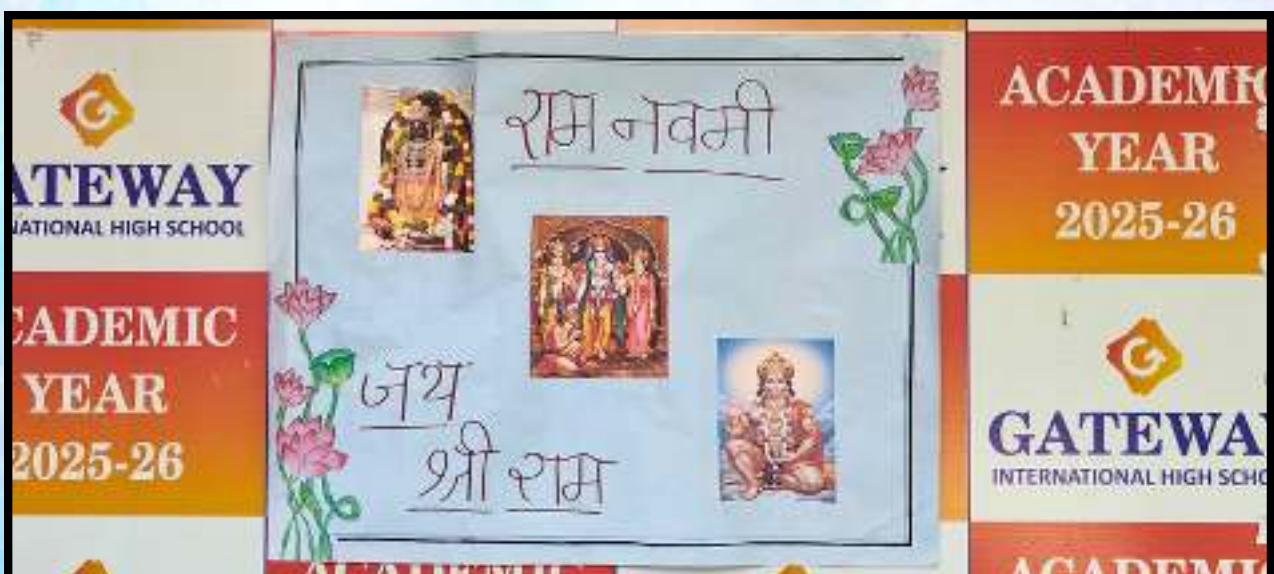 G
ATEWAY
NATIONAL HIGH SCHOOL
CADEMIC
YEAR
2025-26
राम नवमी
जय
श्री राम
ACADEMIC
YEAR
2025-26
G
GATEWAY
INTERNATIONAL HIGH SCHO
ACADEMIC
ACADEMI